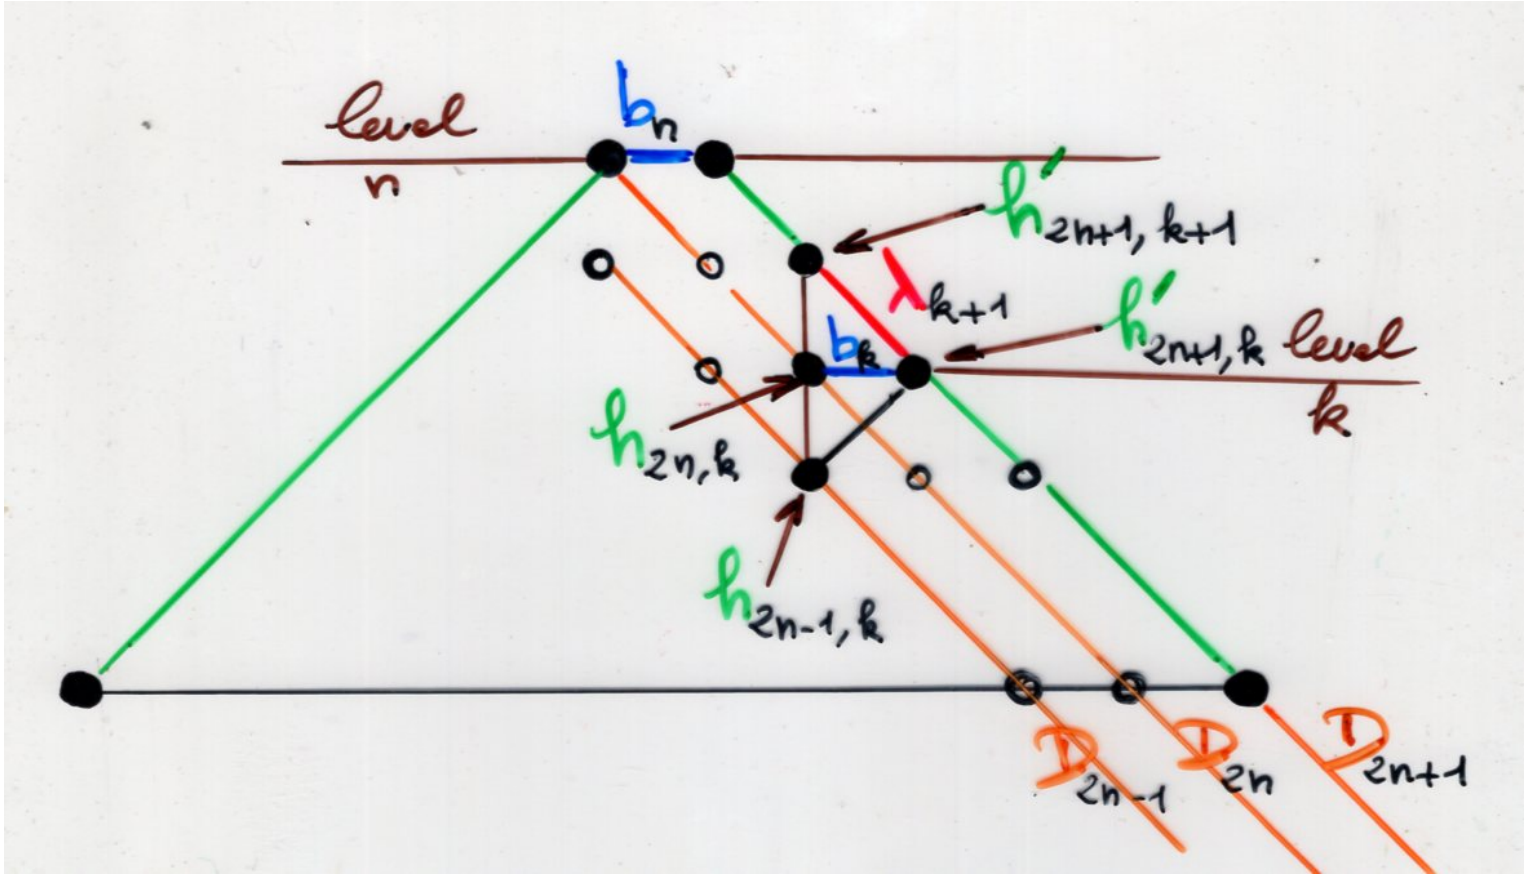 level
n
b_n
h'_{2n+1, k+1}
λ_{k+1}
h'_{2n+1, k}
level
k
b_k
h_{2n, k}
h_{2n-1, k}
D_{2n-1}
D_{2n}
D_{2n+1}